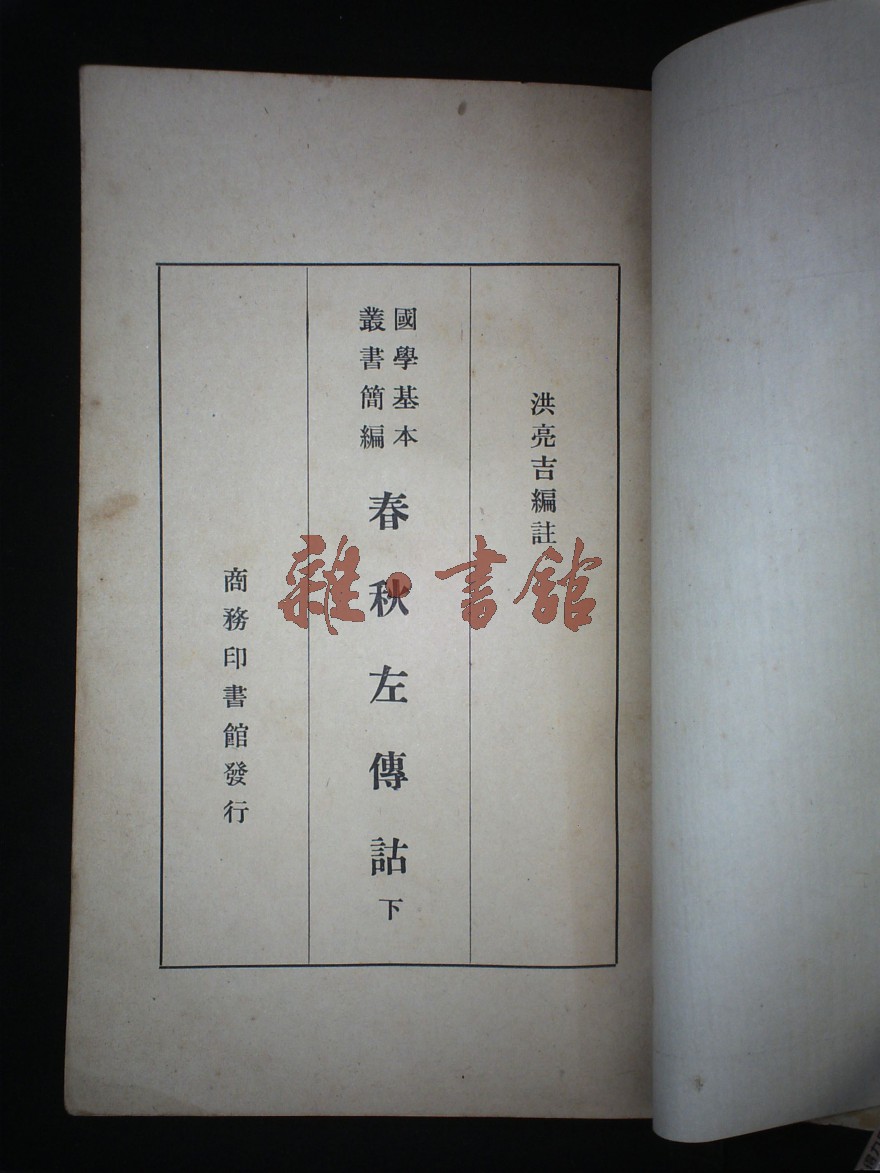 洪亮吉編註
國學基本
叢書簡編
春秋左傳詁 下
商務印書館發行
雜·書館